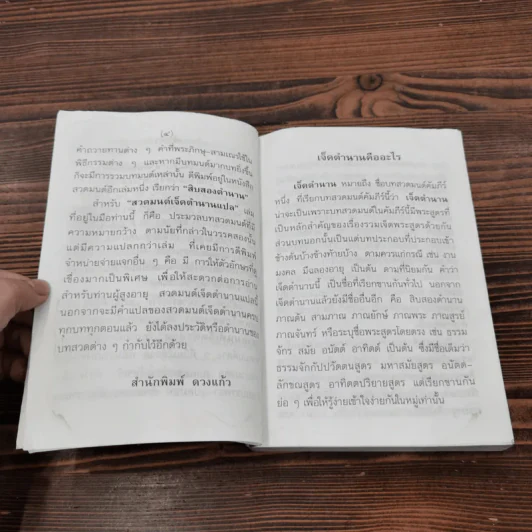 (๔)
คำถวายทานต่าง ๆ คำที่พระภิกษุ-สามเณรใช้ใน
พิธีกรรมต่าง ๆ และหากมีบทมนต์มากบทยิ่งขึ้น
ก็จะมีการรวมบทมนต์เหล่านั้น ตีพิมพ์อยู่ในหนังสือ
สวดมนต์อีกเล่มหนึ่ง เรียกว่า "สิบสองตำนาน"
สำหรับ "สวดมนต์เจ็ดตำนานแปล" เล่ม
ที่อยู่ในมือท่านนี้ ก็คือ ประมวลบทสวดมนต์ที่มี
ความหมายกว้าง ตามนัยที่กล่าวในวรรคสองนั้น
แต่มีความแปลกกว่าเล่ม ที่เคยมีการตีพิมพ์
จำหน่ายจ่ายแจกอื่น ๆ คือ มี การให้ตัวอักษรที่
เขื่องมากเป็นพิเศษ เพื่อให้สะดวกต่อการอ่าน
สำหรับท่านผู้สูงอายุ สวดมนต์เจ็ดตำนานแปลนี้
นอกจากจะมีคำแปลของสวดมนต์เจ็ดตำนานครบ
ทุกบททุกตอนแล้ว ยังได้ลงประวัติหรือตำนานของ
บทสวดต่าง ๆ กำกับไว้อีกด้วย
สำนักพิมพ์ ดวงแก้ว
เจ็ดตำนานคืออะไร
เจ็ดตำนาน หมายถึง ชื่อบทสวดมนต์คัมภีร์
หนึ่ง ที่เรียกบทสวดมนต์คัมภีร์นี้ว่า เจ็ดตำนาน
น่าจะเป็นเพราะบทสวดมนต์ในคัมภีร์นี้มีพระสูตรที่
เป็นหลักสำคัญของเรื่องรวมเจ็ดพระสูตรด้วยกัน
ส่วนบทนอกนั้นเป็นแต่บทประกอบที่ประกอบเข้า
ข้างต้นบ้างข้างท้ายบ้าง ตามควรแก่กรณี เช่น งาน
มงคล มีฉลองอายุ เป็นต้น ตามที่นิยมกัน คำว่า
เจ็ดตำนานนี้ เป็นชื่อที่เรียกขานกันทั่วไป นอกจาก
เจ็ดตำนานแล้วยังมีชื่ออื่นอีก คือ สิบสองตำนาน
ภาณต้น สามภาณ ภาณยักษ์ ภาณพระ ภาณสูรย์
ภาณจันทร์ หรือระบุชื่อพระสูตรโดยตรง เช่น ธรรม
จักร สมัย อนัตต์ อาทิตต์ เป็นต้น ซึ่งมีชื่อเดิมว่า
ธรรมจักกัปปวัตตนสูตร มหาสมัยสูตร อนัตต-
ลักขณสูตร อาทิตตปริยายสูตร แต่เรียกขานกัน
ย่อ ๆ เพื่อให้รู้ง่ายเข้าใจง่ายกันในหมู่เท่านั้น